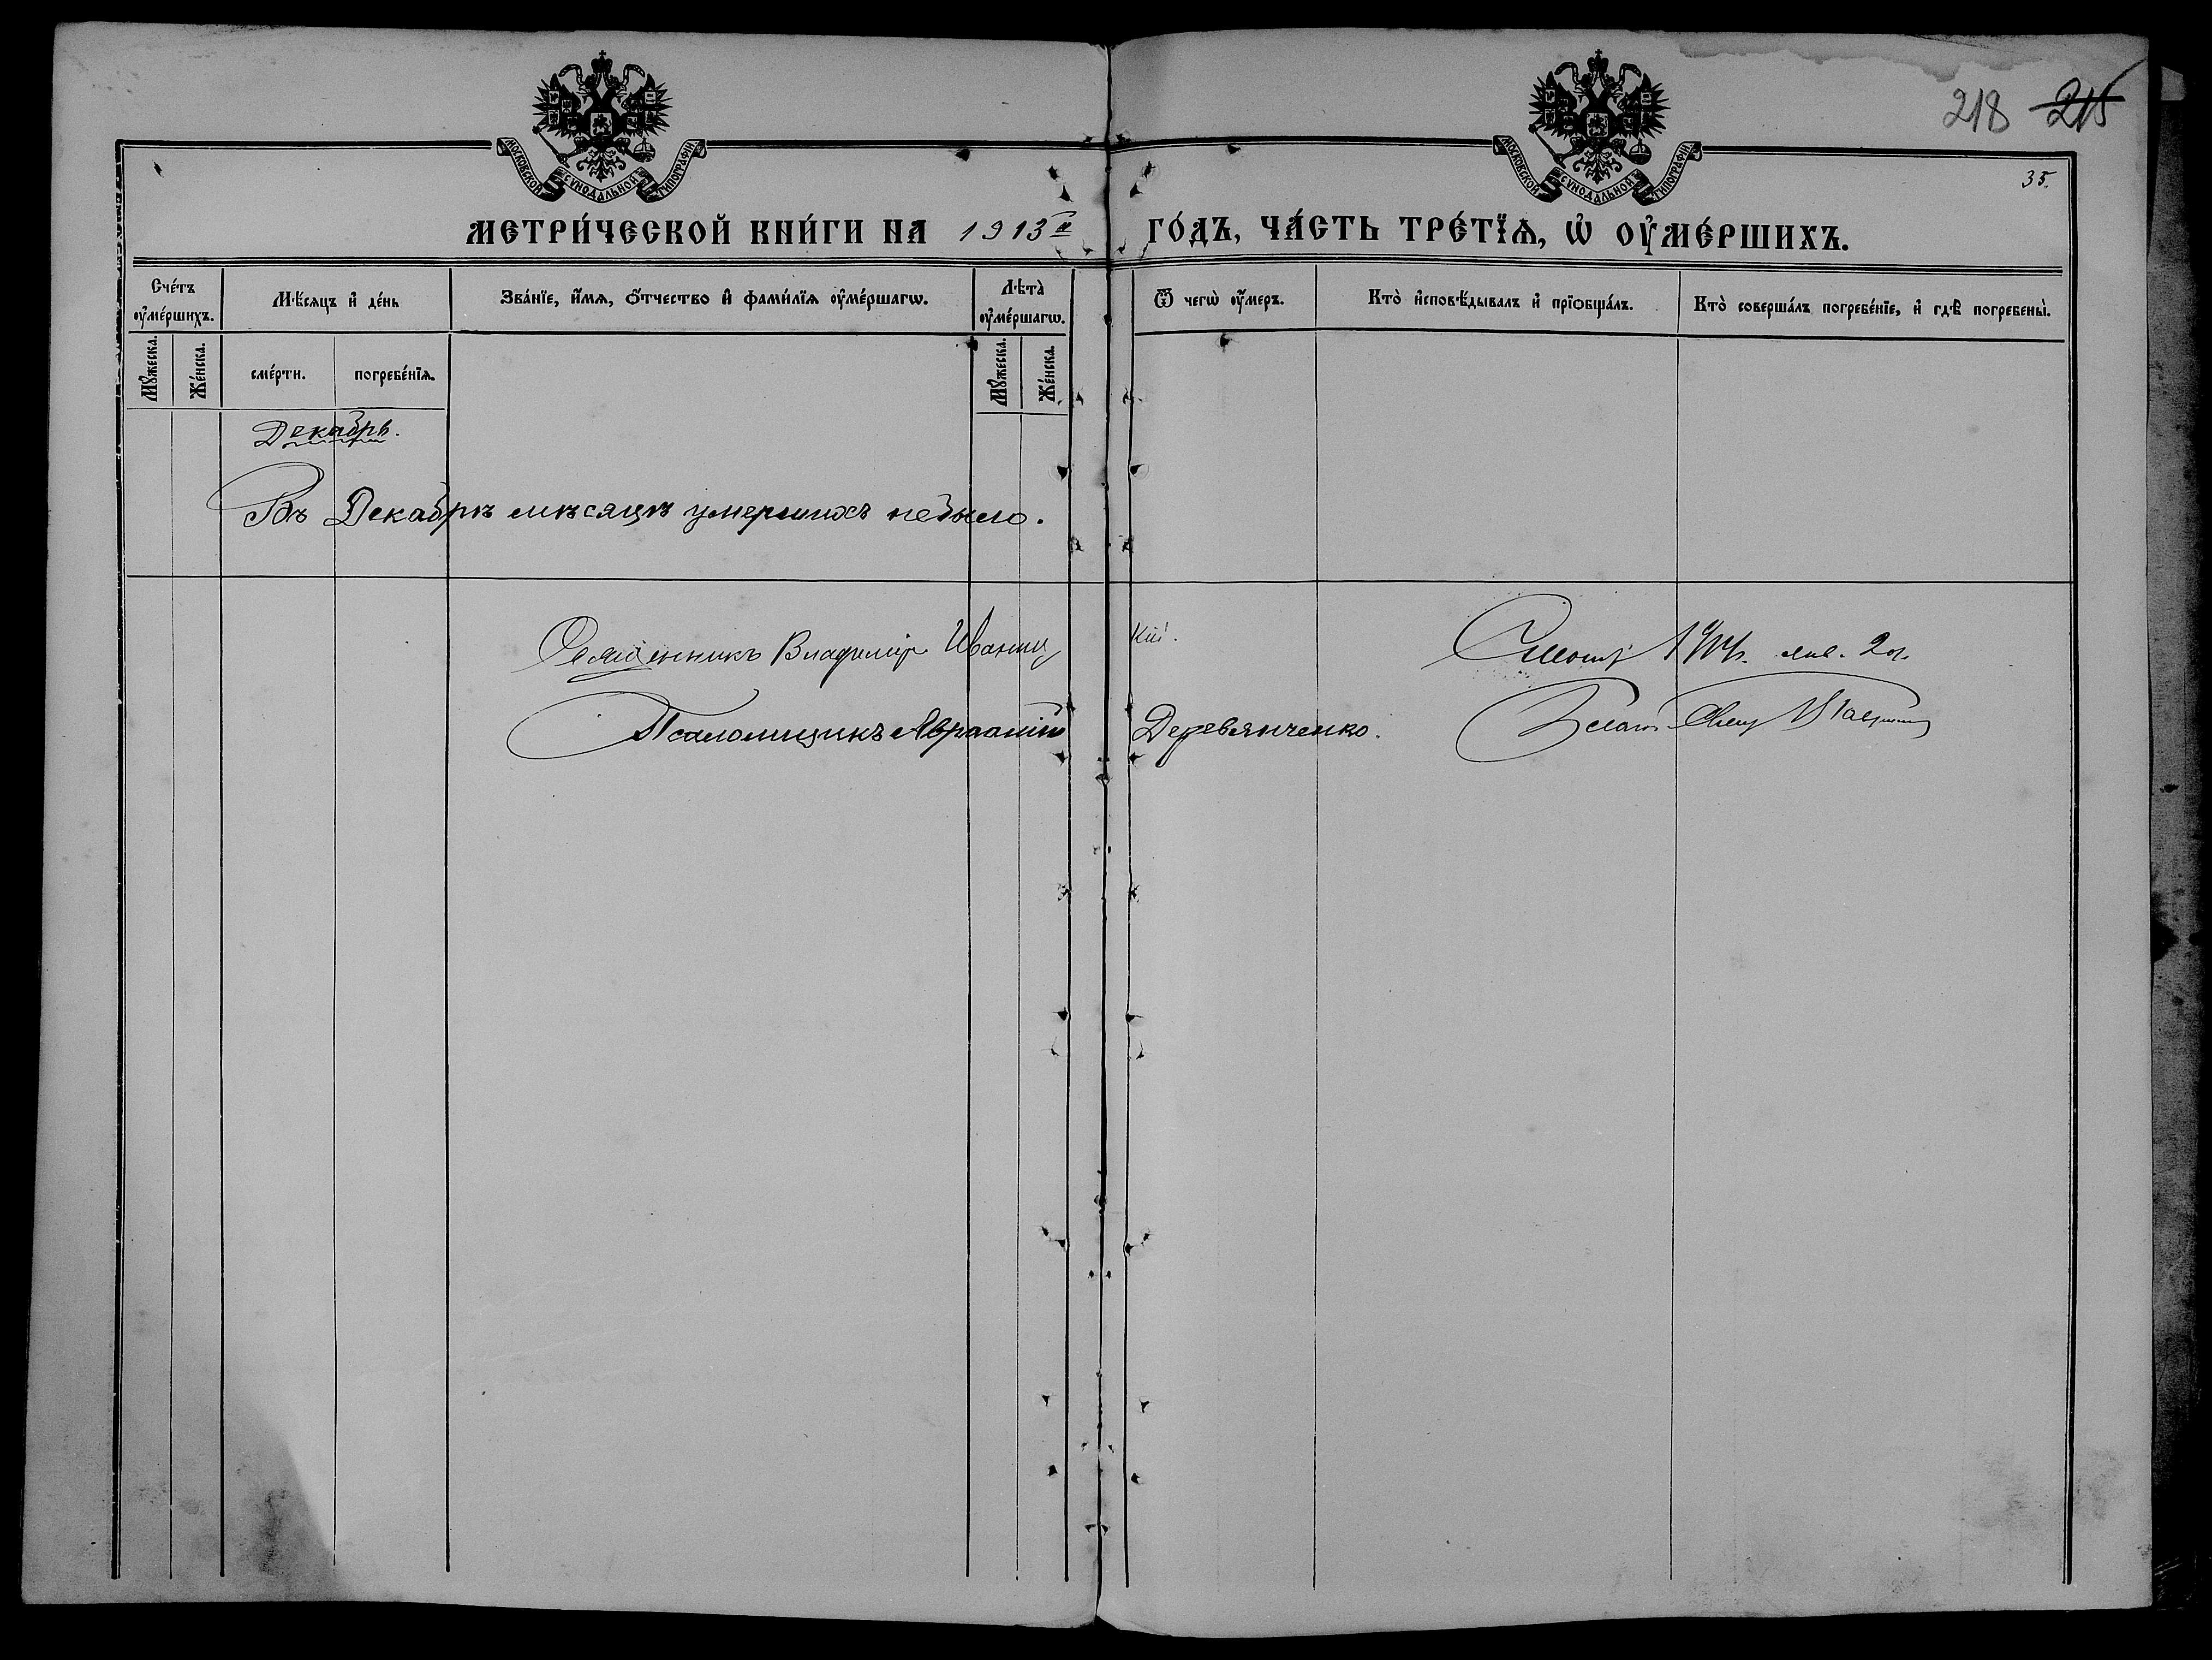 218 215
35.
МОСКОВСКОЙ СѴНОДАЛЬНОЙ ТИПОГРАФІИ.
МОСКОВСКОЙ СѴНОДАЛЬНОЙ ТИПОГРАФІИ.
МЕТРИ́ЧЕСКОЙ КНИ́ГИ НА 1913й ГО́ДЪ, ЧА́СТЬ ТРЕ́ТЇѦ, Ѡ҆ ОУ҆МЕ́РШИХЪ.
Сче́тъ оу҆ме́ршихъ.
Мѣ́сяцъ и҆ де́нь
Зва́нїе, и҆́мѧ, ѻ҆́тчество и҆ фами́лїѧ оу҆ме́ршагѡ.
Лѣта̀ оу҆ме́ршагѡ.
Ѿ чегѡ̀ оу҆́меръ.
Кто̀ и҆сповѣ́дывалъ и҆ прїѡбща́лъ.
Кто̀ соверша́лъ погребе́нїе, и҆ гдѣ̀ погребены̀.
Мꙋ́жеска.
Же́нска.
сме́рти.
погребе́нїѧ.
Мꙋ́жеска.
Же́нска.
Декабрь.
Въ Декабрѣ мѣсяцѣ умершихъ небыло.
Священникъ Владиміръ Иваницкій.
Псаломщикъ Авраамій Деревянченко.
янв.